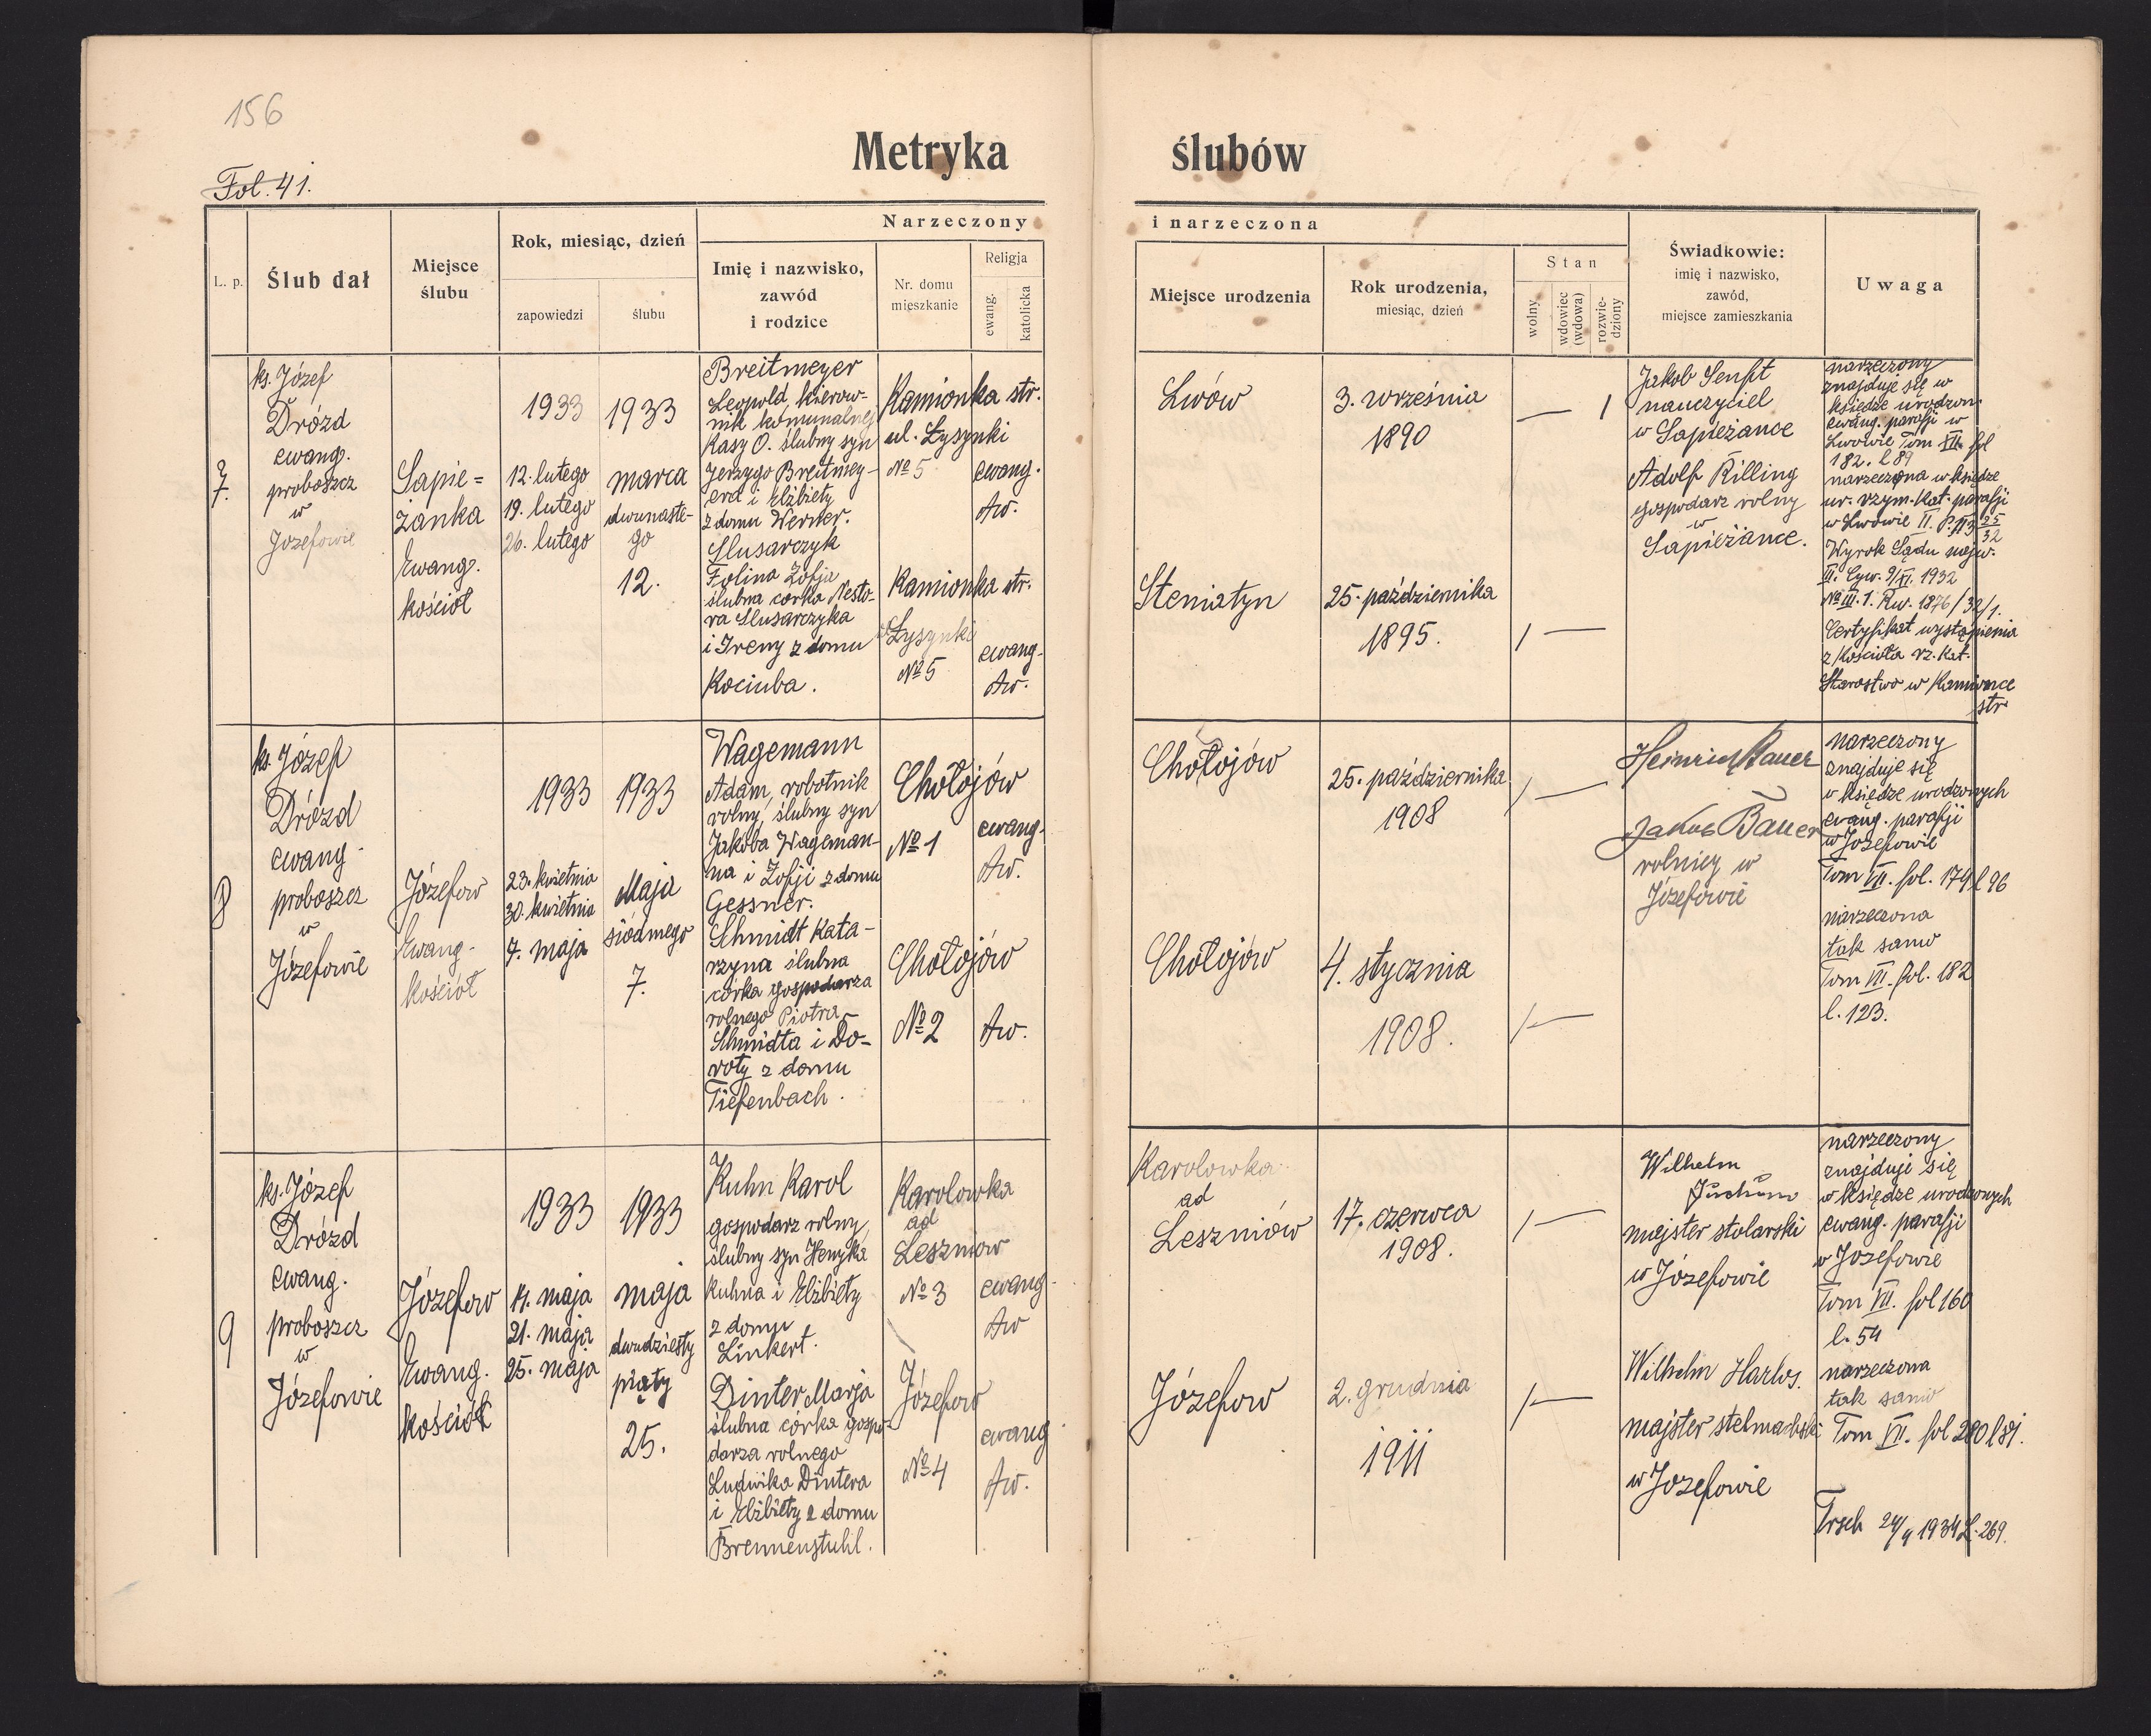 156
Fol. 41.
Metryka ślubów
L. p.
Ślub dał
Miejsce
ślubu
Rok, miesiąc, dzień
zapowiedzi
ślubu
Narzeczony
Imię i nazwisko,
zawód
i rodzice
Nr. domu
mieszkanie
Religja
ewang.
katolicka
i narzeczona
Miejsce urodzenia
Rok urodzenia,
miesiąc, dzień
Stan
wolny
wdowiec
(wdowa)
rozwie-
dziony
Świadkowie:
imię i nazwisko,
zawód,
miejsce zamieszkania
Uwaga
7.
ks. Józef
Drózd
ewang.
proboszcz
w
Józefowie
Sapie=
żanka
Ewang.
kościół
1933
12. lutego
19. lutego
26. lutego
1933
marca
dwunaste-
go
12.
Breitmeyer
Leopold, kierow-
nik komunalnej
Kasy O. ślubny syn
Jerzego Breitmey-
era i Elżbiety
z domu Werner.
Ślusarczyk
Folina Zofja
ślubna córka Nesto-
ra Ślusarczyka
i Ireny z domu
Kociuba.
Kamionka str.
ul. Łysynki
№ 5
ewang.
Aw.
Kamionka str.
Łysynki
№ 5
ewang.
Aw.
Lwów
3. września
1890
— 1
Steniatyn
25. października
1895.
1 —
Jakob Senft
nauczyciel
w Sapieżance
Adolf Killing
gospodarz rolny
w
Sapieżance.
narzeczony
znajduje się w
księdze urodzon.
ewang. parafji w
Lwowie Tom XII. fol
182. l 89
narzeczona w księdze
ur. rzym.-kat. parafji
w Lwowie
Wyrok Sądu najw.
III. Cyw. 9/XI. 1932
№ III. 1. Rw. 1876/32/1.
Certyfikat wystąpienia
z Kościoła rz. kat.
Starostwo w Kamionce
str
8
ks. Józef
Drózd
ewang.
proboszcz
w
Józefowie
Józefow
Ewang-
kościół
1933
23. kwietnia
30. kwietnia
7. maja
1933
Maja
siódmego
7.
Wagemann
Adam, robotnik
rolny, ślubny syn
Jakóba Wageman-
na i Zofji z domu
Gessner.
Schmidt Kata-
rzyna ślubna
córka gospodarza
rolnego Piotra
Schmidta i Do-
roty z domu
Tiefenbach.
Chołojów
№ 1
ewang.
Aw.
Chołojów
№ 2
Aw.
Chołojów
25. października
1908
1 —
Chołojów
4. stycznia
1908.
1 —
Heinrich Bauer
Jakob Bauer
rolnicy w
Józefowie
narzeczony
znajduje się
w księdze urodzonych
ewang. parafji
w Józefowie
Tom VII. fol. 179 l 96
narzeczona
tak samo
Tom VII. fol. 182
l. 123.
9
ks. Józef
Drózd
ewang.
proboszcz
w
Józefowie
Józefow
Ewang.
kościół
1933
14. maja
21. maja
25. maja
1933
maja
dwudziesty
piąty
25.
Kuhn Karol
gospodarz rolny,
ślubny syn Henryka
Kuhna i Elżbiety
z domu
Linkert.
Dinter Marja
ślubna córka gospo-
darza rolnego
Ludwika Dintera
i Elżbiety z domu
Brennenstuhl.
Karolowka
ad
Leszniow
№ 3
ewang-
Aw
Józefow
№ 4
ewang
Aw.
Karolowka
ad
Leszniów
17. czerwca
1908.
1 —
Józefow
2. grudnia
1911
1 —
Wilhelm
Juchum
majster stolarski
w Józefowie
Wilhelm Harlos.
majster stelmachski
w Józefowie
narzeczony
znajduje się
w księdze urodzonych
ewang. parafji
w Józefowie
Tom VII. fol 160
l. 54
narzeczona
tak samo
Tom VII. fol 280